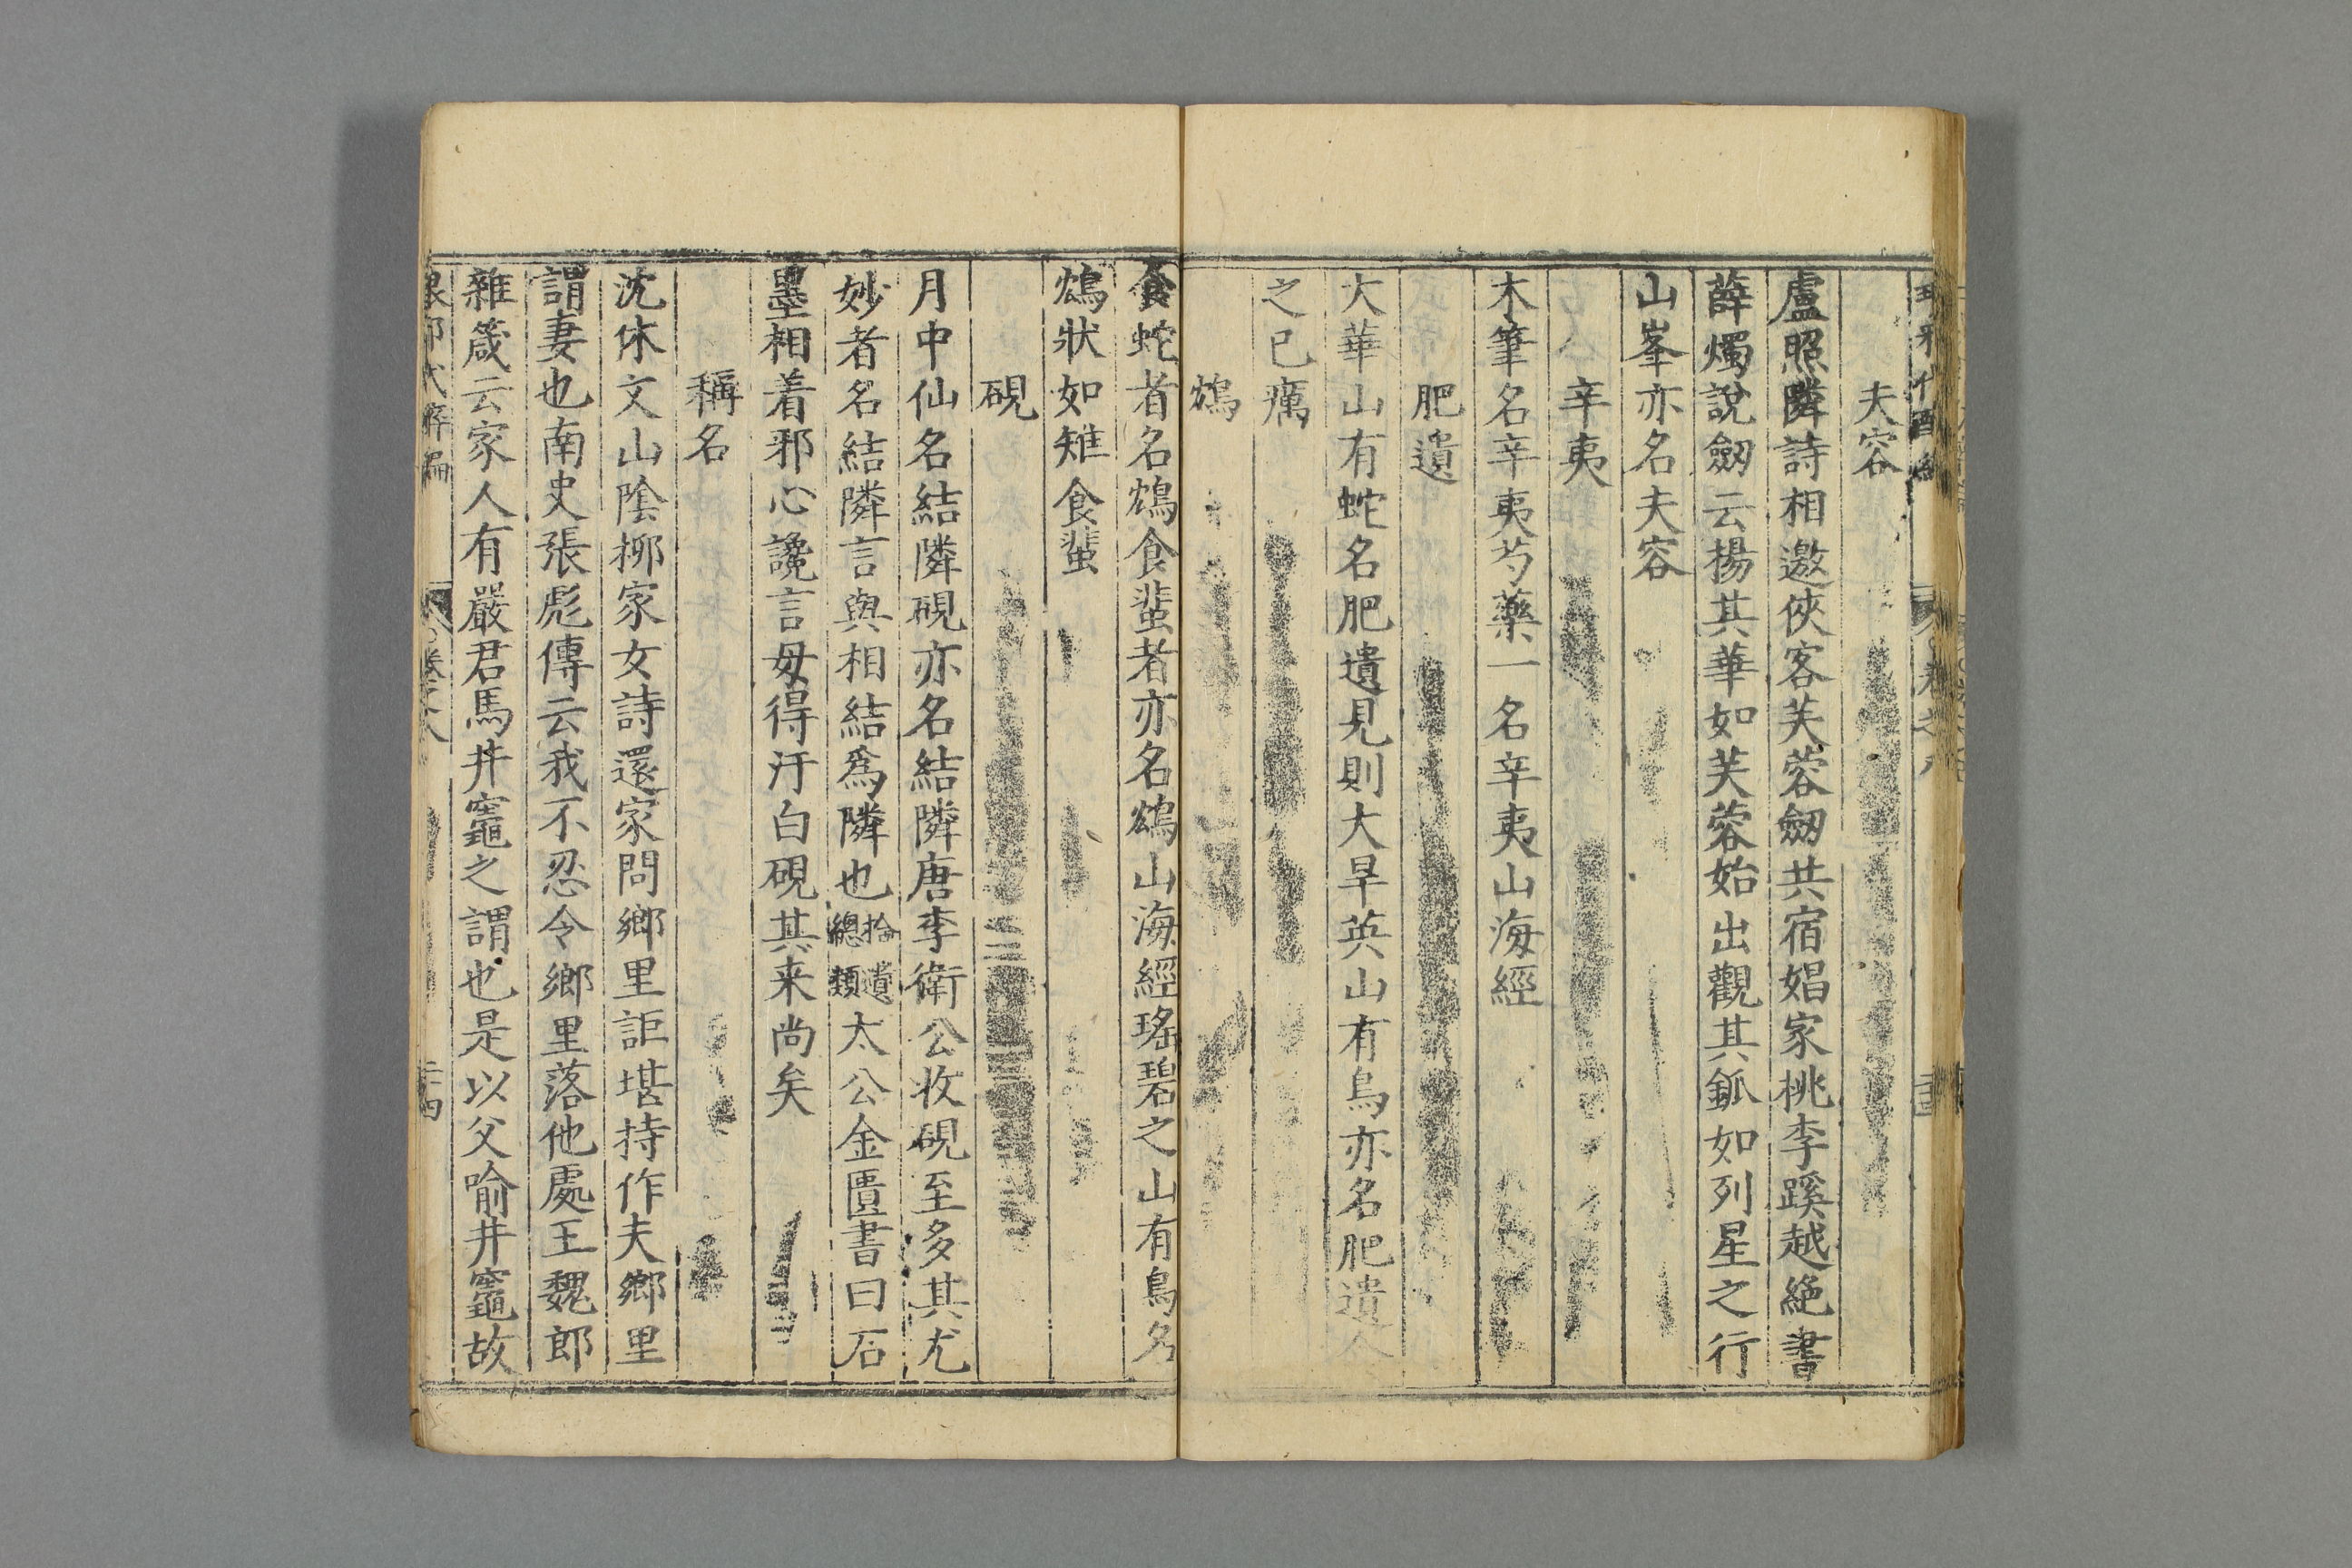 夫容
盧照隣詩相邀俠客芙蓉劔共宿娼家桃李蹊越絶書
薛燭說劔云揚其華如芙蓉始出觀其釽如列星之行
山峯亦名夫容
辛夷
木筆名辛夷芍藥一名辛夷山海經
肥遺
大華山有蛇名肥遺見則大旱英山有鳥亦名肥遺人
之已癘
鴆
食蛇者名鴆食蜚者亦名鴆山海經瑤碧之山有鳥名
鴆狀如雉食蜚
硯
月中仙名結隣硯亦名結隣唐李衛公收硯至多其尤
妙者名結隣言與相結爲隣也拾遺總類太公金匱書曰石
墨相着邪心讒言毋得汙白硯其来尚矣
稱名
沈休文山陰柳家女詩還家問鄉里詎堪持作夫鄉里
謂妻也南史張彪傳云我不忍令鄉里落他處王魏郎
雜箴云家人有嚴君馬井竈之謂也是以父喻井竈故
卷之八